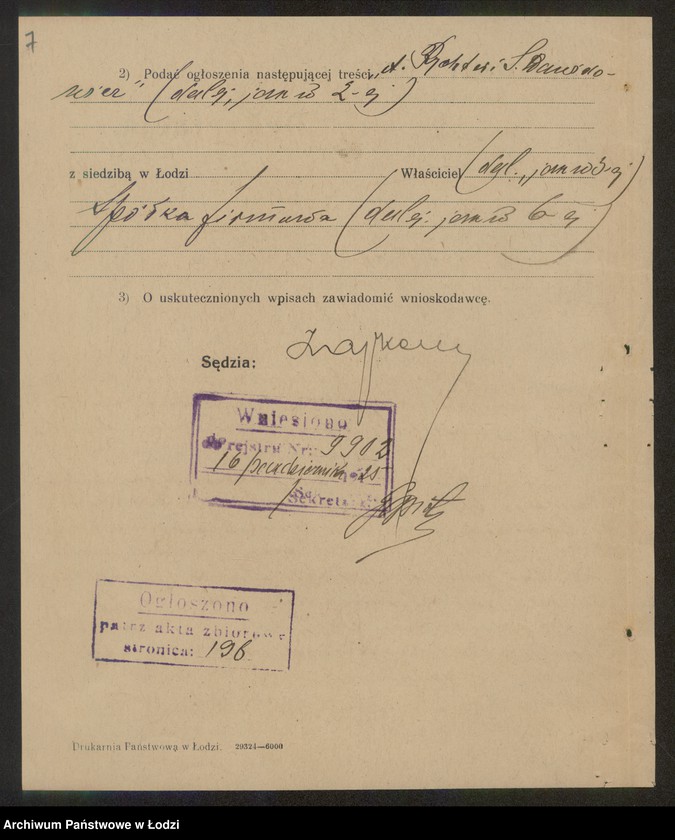 7
2) Podać ogłoszenia następującej treści „A. i S. Dawido-
wicz" (dalej, jak w 2-ej)
z siedzibą w Łodzi Właściciel (dal., jak w 5-ej)
Spółka firmowa (dalej jak w 6-ej)
3) O uskutecznionych wpisach zawiadomić wnioskodawcę.
Sędzia:
Wniesiono
do rejestru Nr. 9902
16 października 1925
Sekretarz
Ogłoszono
patrz akta zbiorowe
stronica: 196
Drukarnia Państwowa w Łodzi. 29324—6000
Archiwum Państwowe w Łodzi